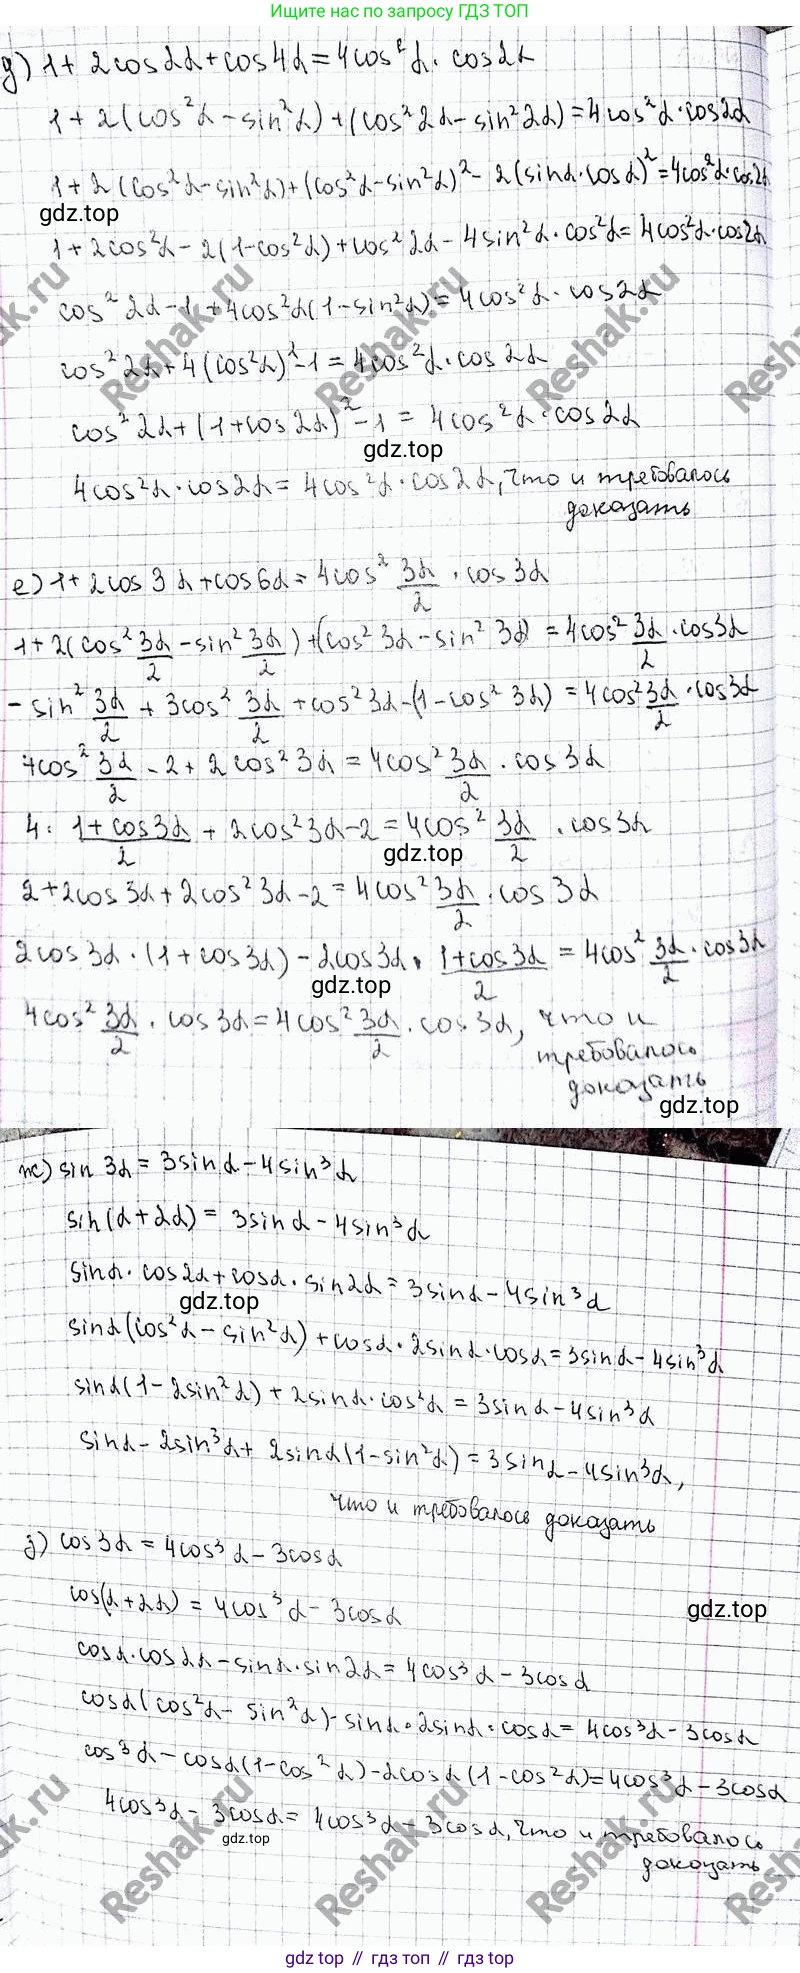 Ищите нас по запросу ГДЗ ТОП
д) 1 + 2cos2α + cos4α = 4cos²α · cos2α
1 + 2(cos²α - sin²α) + (cos²2α - sin²2α) = 4cos²α · cos2α
1 + 2(cos²α - sin²α) + (cos²α - sin²α)² - 2(sinα · cosα)² = 4cos²α · cos2α
gdz.top
1 + 2cos²α - 2(1 - cos²α) + cos²2α - 4sin²α · cos²α = 4cos²α · cos2α
cos²2α - 1 + 4cos²α(1 - sin²α) = 4cos²α · cos2α
cos²2α + 4(cos²α)² - 1 = 4cos²α · cos2α
cos²2α + (1 + cos2α)² - 1 = 4cos²α · cos2α
gdz.top
4cos²α · cos2α = 4cos²α · cos2α, что и требовалось
доказать
е) 1 + 2cos3α + cos6α = 4cos² 3α/2 · cos3α
1 + 2(cos² 3α/2 - sin² 3α/2) + (cos²3α - sin²3α) = 4cos² 3α/2 · cos3α
- sin² 3α/2 + 3cos² 3α/2 + cos²3α - (1 - cos²3α) = 4cos² 3α/2 · cos3α
4cos² 3α/2 - 2 + 2cos²3α = 4cos² 3α/2 · cos3α
4 · (1 + cos3α)/2 + 2cos²3α - 2 = 4cos² 3α/2 · cos3α
gdz.top
2 + 2cos3α + 2cos²3α - 2 = 4cos² 3α/2 · cos3α
2cos3α · (1 + cos3α) - 2cos3α · (1 + cos3α)/2 = 4cos² 3α/2 · cos3α
gdz.top
4cos² 3α/2 · cos3α = 4cos² 3α/2 · cos3α, что и
требовалось
доказать
gdz.top
ж) sin3α = 3sinα - 4sin³α
sin(α + 2α) = 3sinα - 4sin³α
sinα · cos2α + cosα · sin2α = 3sinα - 4sin³α
gdz.top
sinα(cos²α - sin²α) + cosα · 2sinα · cosα = 3sinα - 4sin³α
sinα(1 - 2sin²α) + 2sinα · cos²α = 3sinα - 4sin³α
sinα - 2sin³α + 2sinα(1 - sin²α) = 3sinα - 4sin³α,
что и требовалось доказать
з) cos3α = 4cos³α - 3cosα
cos(α + 2α) = 4cos³α - 3cosα
gdz.top
cosα · cos2α - sinα · sin2α = 4cos³α - 3cosα
cosα(cos²α - sin²α) - sinα · 2sinα · cosα = 4cos³α - 3cosα
cos³α - cosα(1 - cos²α) - 2cosα(1 - cos²α) = 4cos³α - 3cosα
4cos³α - 3cosα = 4cos³α - 3cosα, что и требовалось
gdz.top
доказать
Reshak.ru
gdz top // гдз топ // gdz top